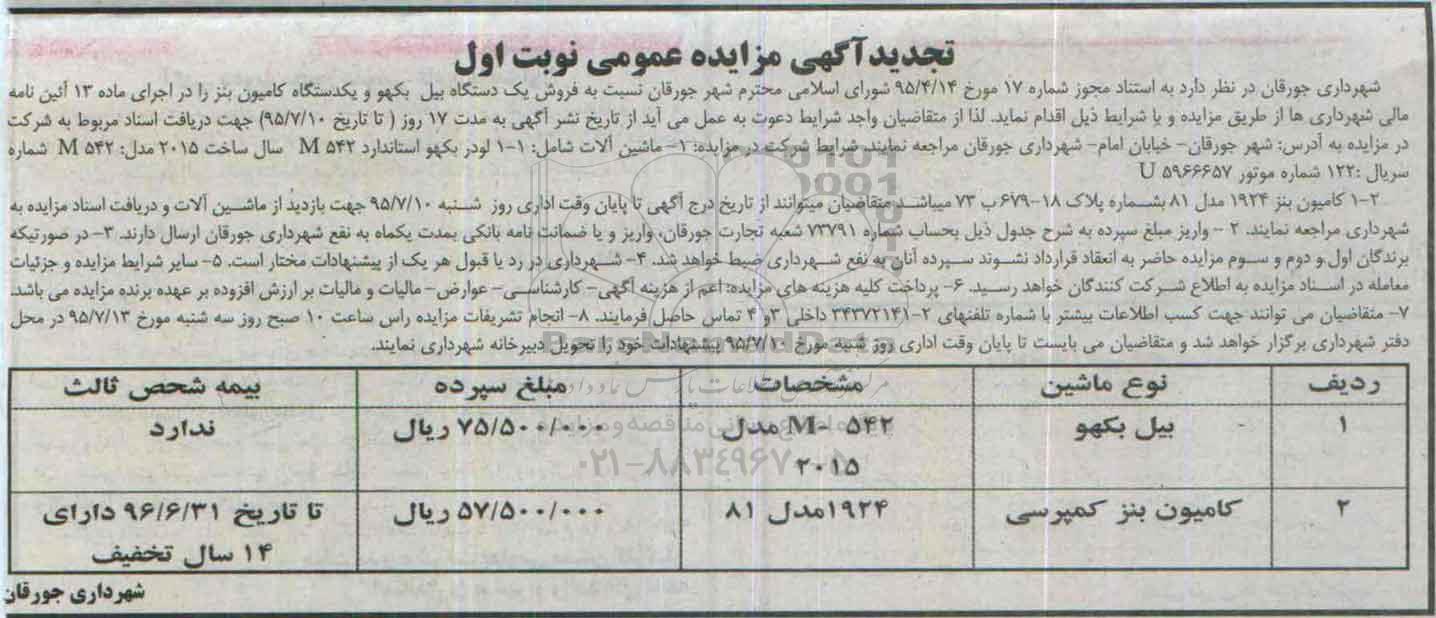 تجدیدآگهی مزایده عمومی نوبت اول
شهرداری جورقان در نظر دارد به استناد مجوز شماره ۱۷ مورخ ۹۵/۴/۱۴ شورای اسلامی محترم شهر جورقان نسبت به فروش یک دستگاه بیل بکهو و یکدستگاه کامیون بنز را در اجرای ماده ۱۳ آئین نامه
مالی شهرداری ها از طریق مزایده و با شرایط ذیل اقدام نماید. لذا از متقاضیان واجد شرایط دعوت به عمل می آید از تاریخ نشر آگهی به مدت ۱۷ روز ( تا تاریخ ۹۵/۷/۱۰) جهت دریافت اسناد مربوط به شرکت
در مزایده به آدرس: شهر جورقان- خیابان امام- شهرداری جورقان مراجعه نمایند. شرایط شرکت در مزایده: ۱- ماشین آلات شامل: ۱-۱ لودر بکهو استاندارد M ۵۴۲ سال ساخت ۲۰۱۵ مدل: M ۵۴۲ شماره
سریال :۱۲۲ شماره موتور U ۵۹۶۶۶۵۷
۱-۲ کامیون بنز ۱۹۲۴ مدل ۸۱ بشماره پلاک ۱۸-۶۷۹ ب ۷۳ میباشد متقاضیان میتوانند از تاریخ درج آگهی تا پایان وقت اداری روز شنبه ۹۵/۷/۱۰ جهت بازدید از ماشین آلات و دریافت اسناد مزایده به
شهرداری مراجعه نمایند. ۲ - واریز مبلغ سپرده به شرح جدول ذیل بحساب شماره ۷۳۷۹۱ شعبه تجارت جورقان، واریز و یا ضمانت نامه بانکی بمدت یکماه به نفع شهرداری جورقان ارسال دارند. ۳- در صورتیکه
برندگان اول و دوم و سوم مزایده حاضر به انعقاد قرارداد نشوند سپرده آنان به نفع شهرداری ضبط خواهد شد. ۴- شهرداری در رد یا قبول هر یک از پیشنهادات مختار است. ۵- سایر شرایط مزایده و جزئیات
معامله در اسناد مزایده به اطلاع شرکت کنندگان خواهد رسید. ۶- پرداخت کلیه هزینه های مزایده: اعم از هزینه آگهی- کارشناسی- عوارض- مالیات و مالیات بر ارزش افزوده بر عهده برنده مزایده می باشد.
۷- متقاضیان می توانند جهت کسب اطلاعات بیشتر با شماره تلفنهای ۲-۳۴۳۷۲۱۴۱ داخلی ۳و ۴ تماس حاصل فرمایند. ۸- انجام تشریفات مزایده راس ساعت ۱۰ صبح روز سه شنبه مورخ ۹۵/۷/۱۳ در محل
دفتر شهرداری برگزار خواهد شد و متقاضیان می بایست تا پایان وقت اداری روز شنبه مورخ ۹۵/۷/۱۰ پیشنهادات خود را تحویل دبیرخانه شهرداری نمایند.
ردیف نوع ماشین مشخصات مبلغ سپرده بیمه شحص ثالث
۱ بیل بکهو ۵۴۲ -M مدل ۷۵/۵۰۰/۰۰۰ ریال ندارد
۲۰۱۵
۲ کامیون بنز کمپرسی ۱۹۲۴مدل ۸۱ ۵۷/۵۰۰/۰۰۰ ریال تا تاریخ ۹۶/۶/۳۱ دارای
۱۴ سال تخفیف
شهرداری جورقان
۰۲۱-۸۸۳۴۹۶۷۰